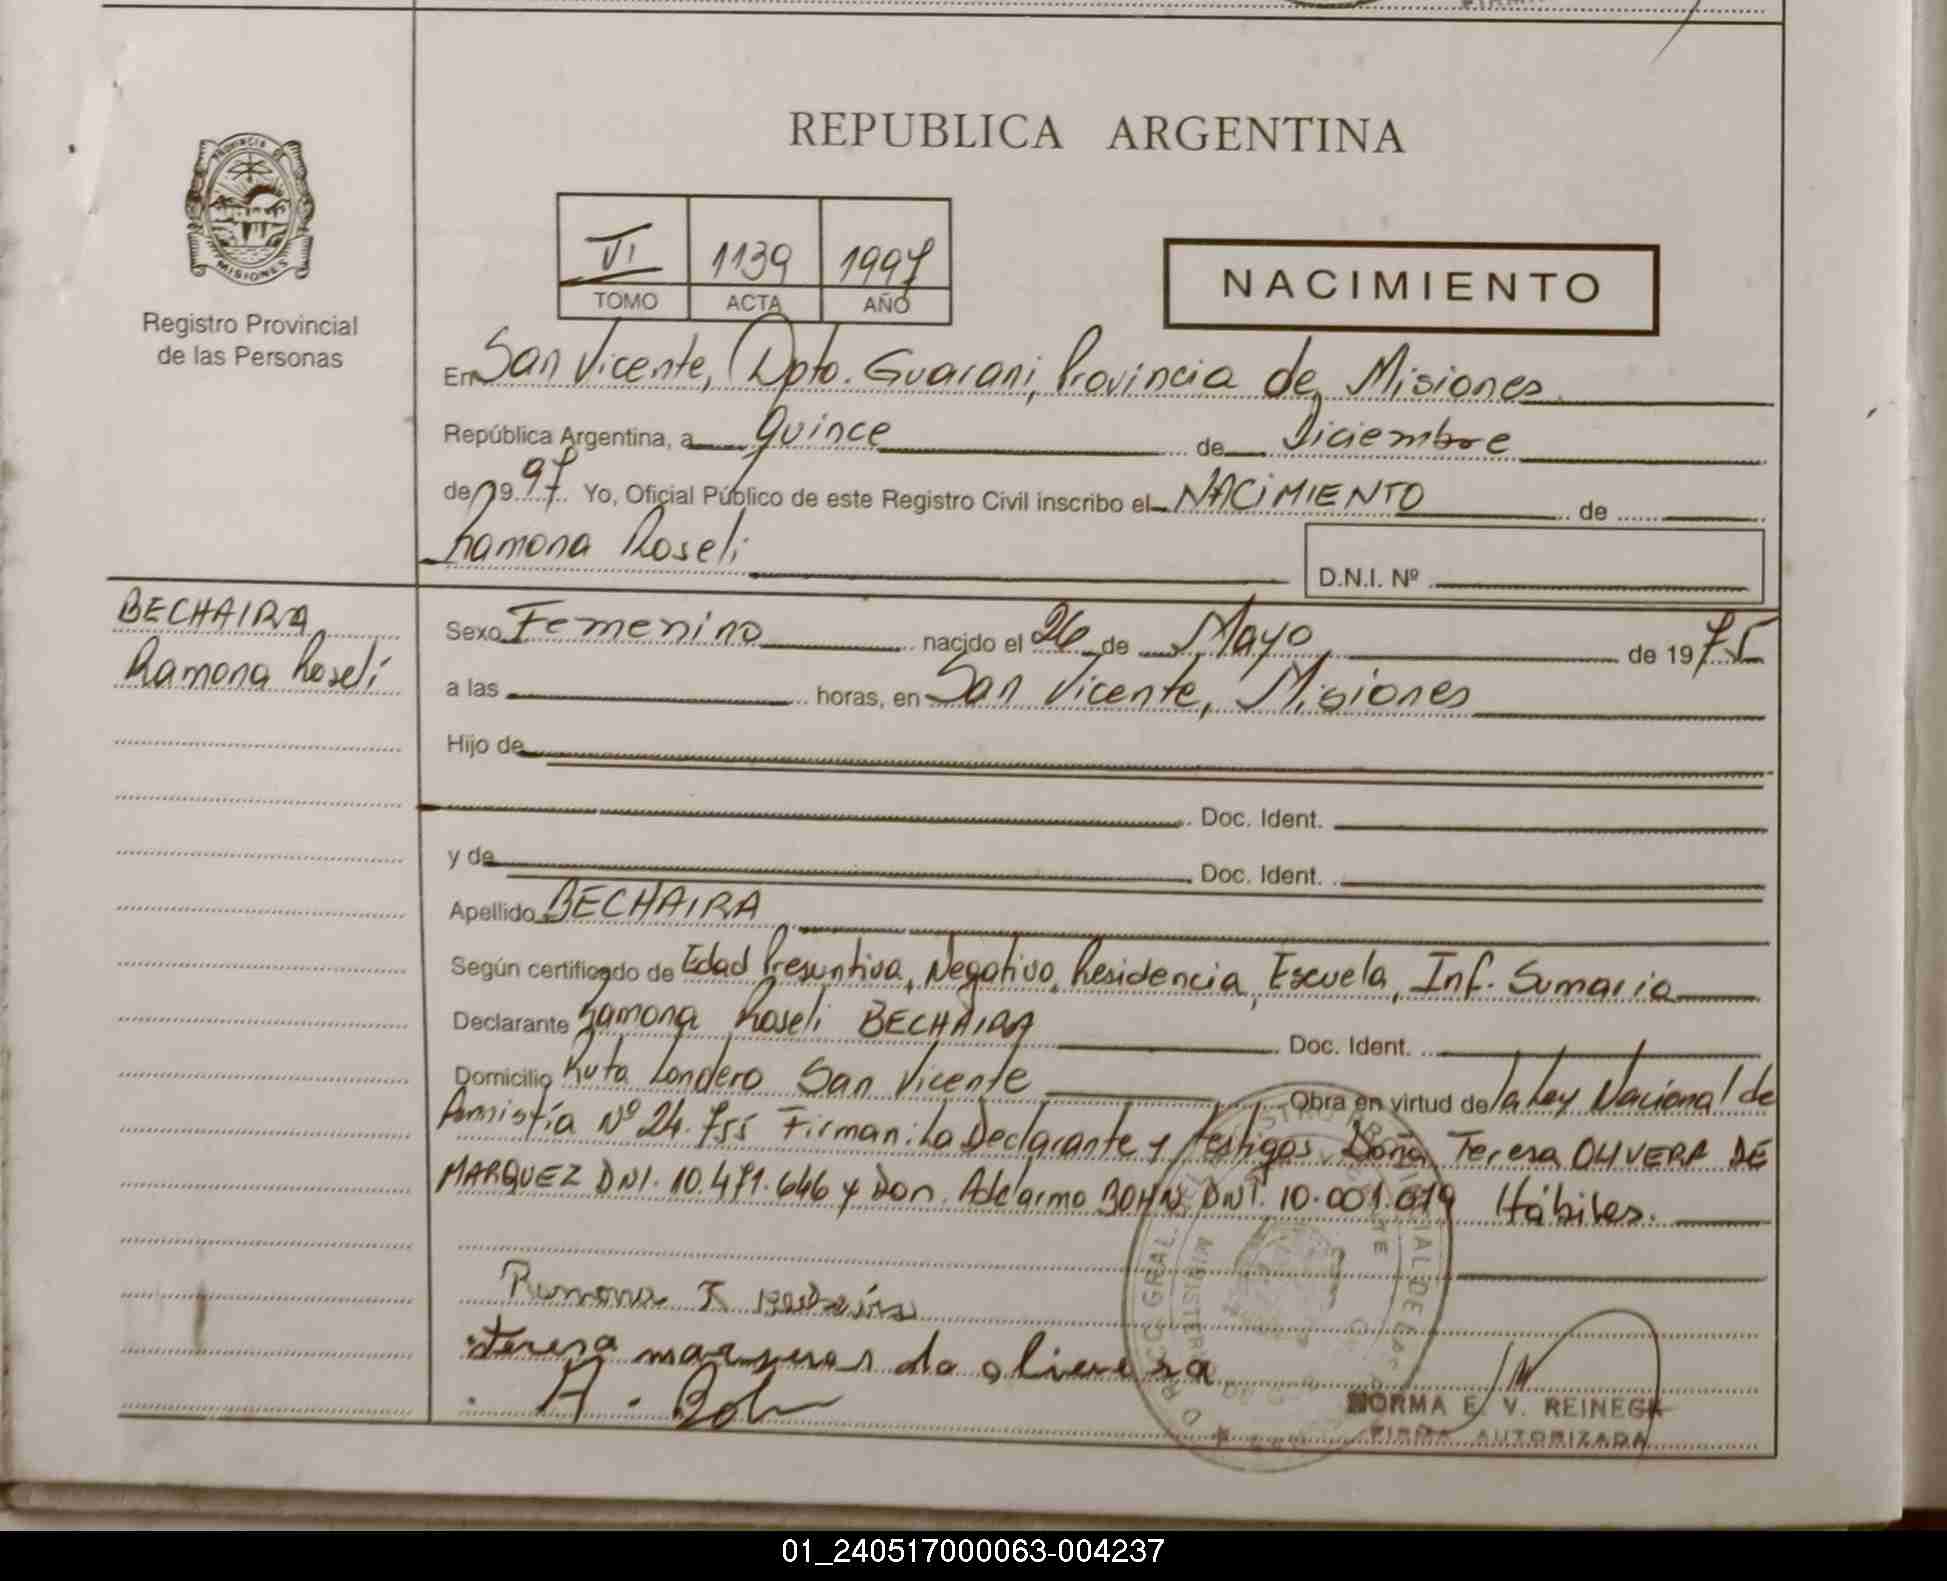 REPUBLICA ARGENTINA
PROVINCIA DE
MISIONES
Registro Provincial
de las Personas
VI 1139 1997
TOMO ACTA AÑO
NACIMIENTO
En San Vicente, Dpto. Guarani, Provincia de Misiones
República Argentina, a quince de Diciembre
de 1997 Yo, Oficial Público de este Registro Civil inscribo el NACIMIENTO de
Ramona Roseli
D.N.I. Nº
BECHAIRA
Ramona Roseli
Sexo Femenino nacido el 26 de Mayo de 1975
a las horas, en San Vicente, Misiones
Hijo de
Doc. Ident.
y de Doc. Ident.
Apellido BECHAIRA
Según certificado de Edad Presuntiva, Negativo, Residencia, Escuela, Inf. Sumaria
Declarante Ramona Roseli BECHAIRA Doc. Ident.
Domicilio Ruta Londero San Vicente Obra en virtud de la Ley Nacional de
Amistía Nº 24.755 Firman: La Declarante y testigos Doña Teresa OLIVERA DE
MARQUEZ DNI. 10.471.646 y Don. Adelarmo BOHN DNI. 10.001.079 Hábiles.
Ramona R
Teresa de olivera
A. Boh
NORMA E. V. REINECK
FIRMA AUTORIZADA
01_240517000063-004237